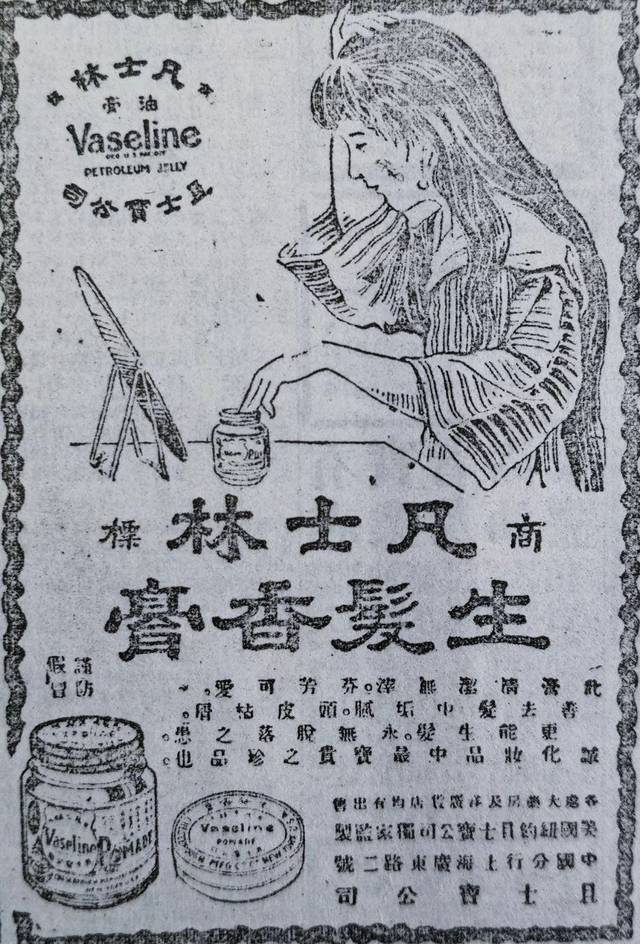 凡士林
油膏
Vaseline
REG U S PAT OFF
PETROLEUM JELLY
且士寶公司
商 凡士林 標
生髮香膏
謹防
假冒
此膏清潔無滓。芬芳可愛。
善去髮中垢膩。頭皮枯屑。
更能生髮。永無脫落之患。
誠化妝品中最寶貴之珍品也。
Vaseline POMADE
Vaseline
POMADE
各處大藥房及洋廣貨店均有出售
美國紐約且士寶公司獨家監製
中國分行上海廣東路二號
且士寶公司